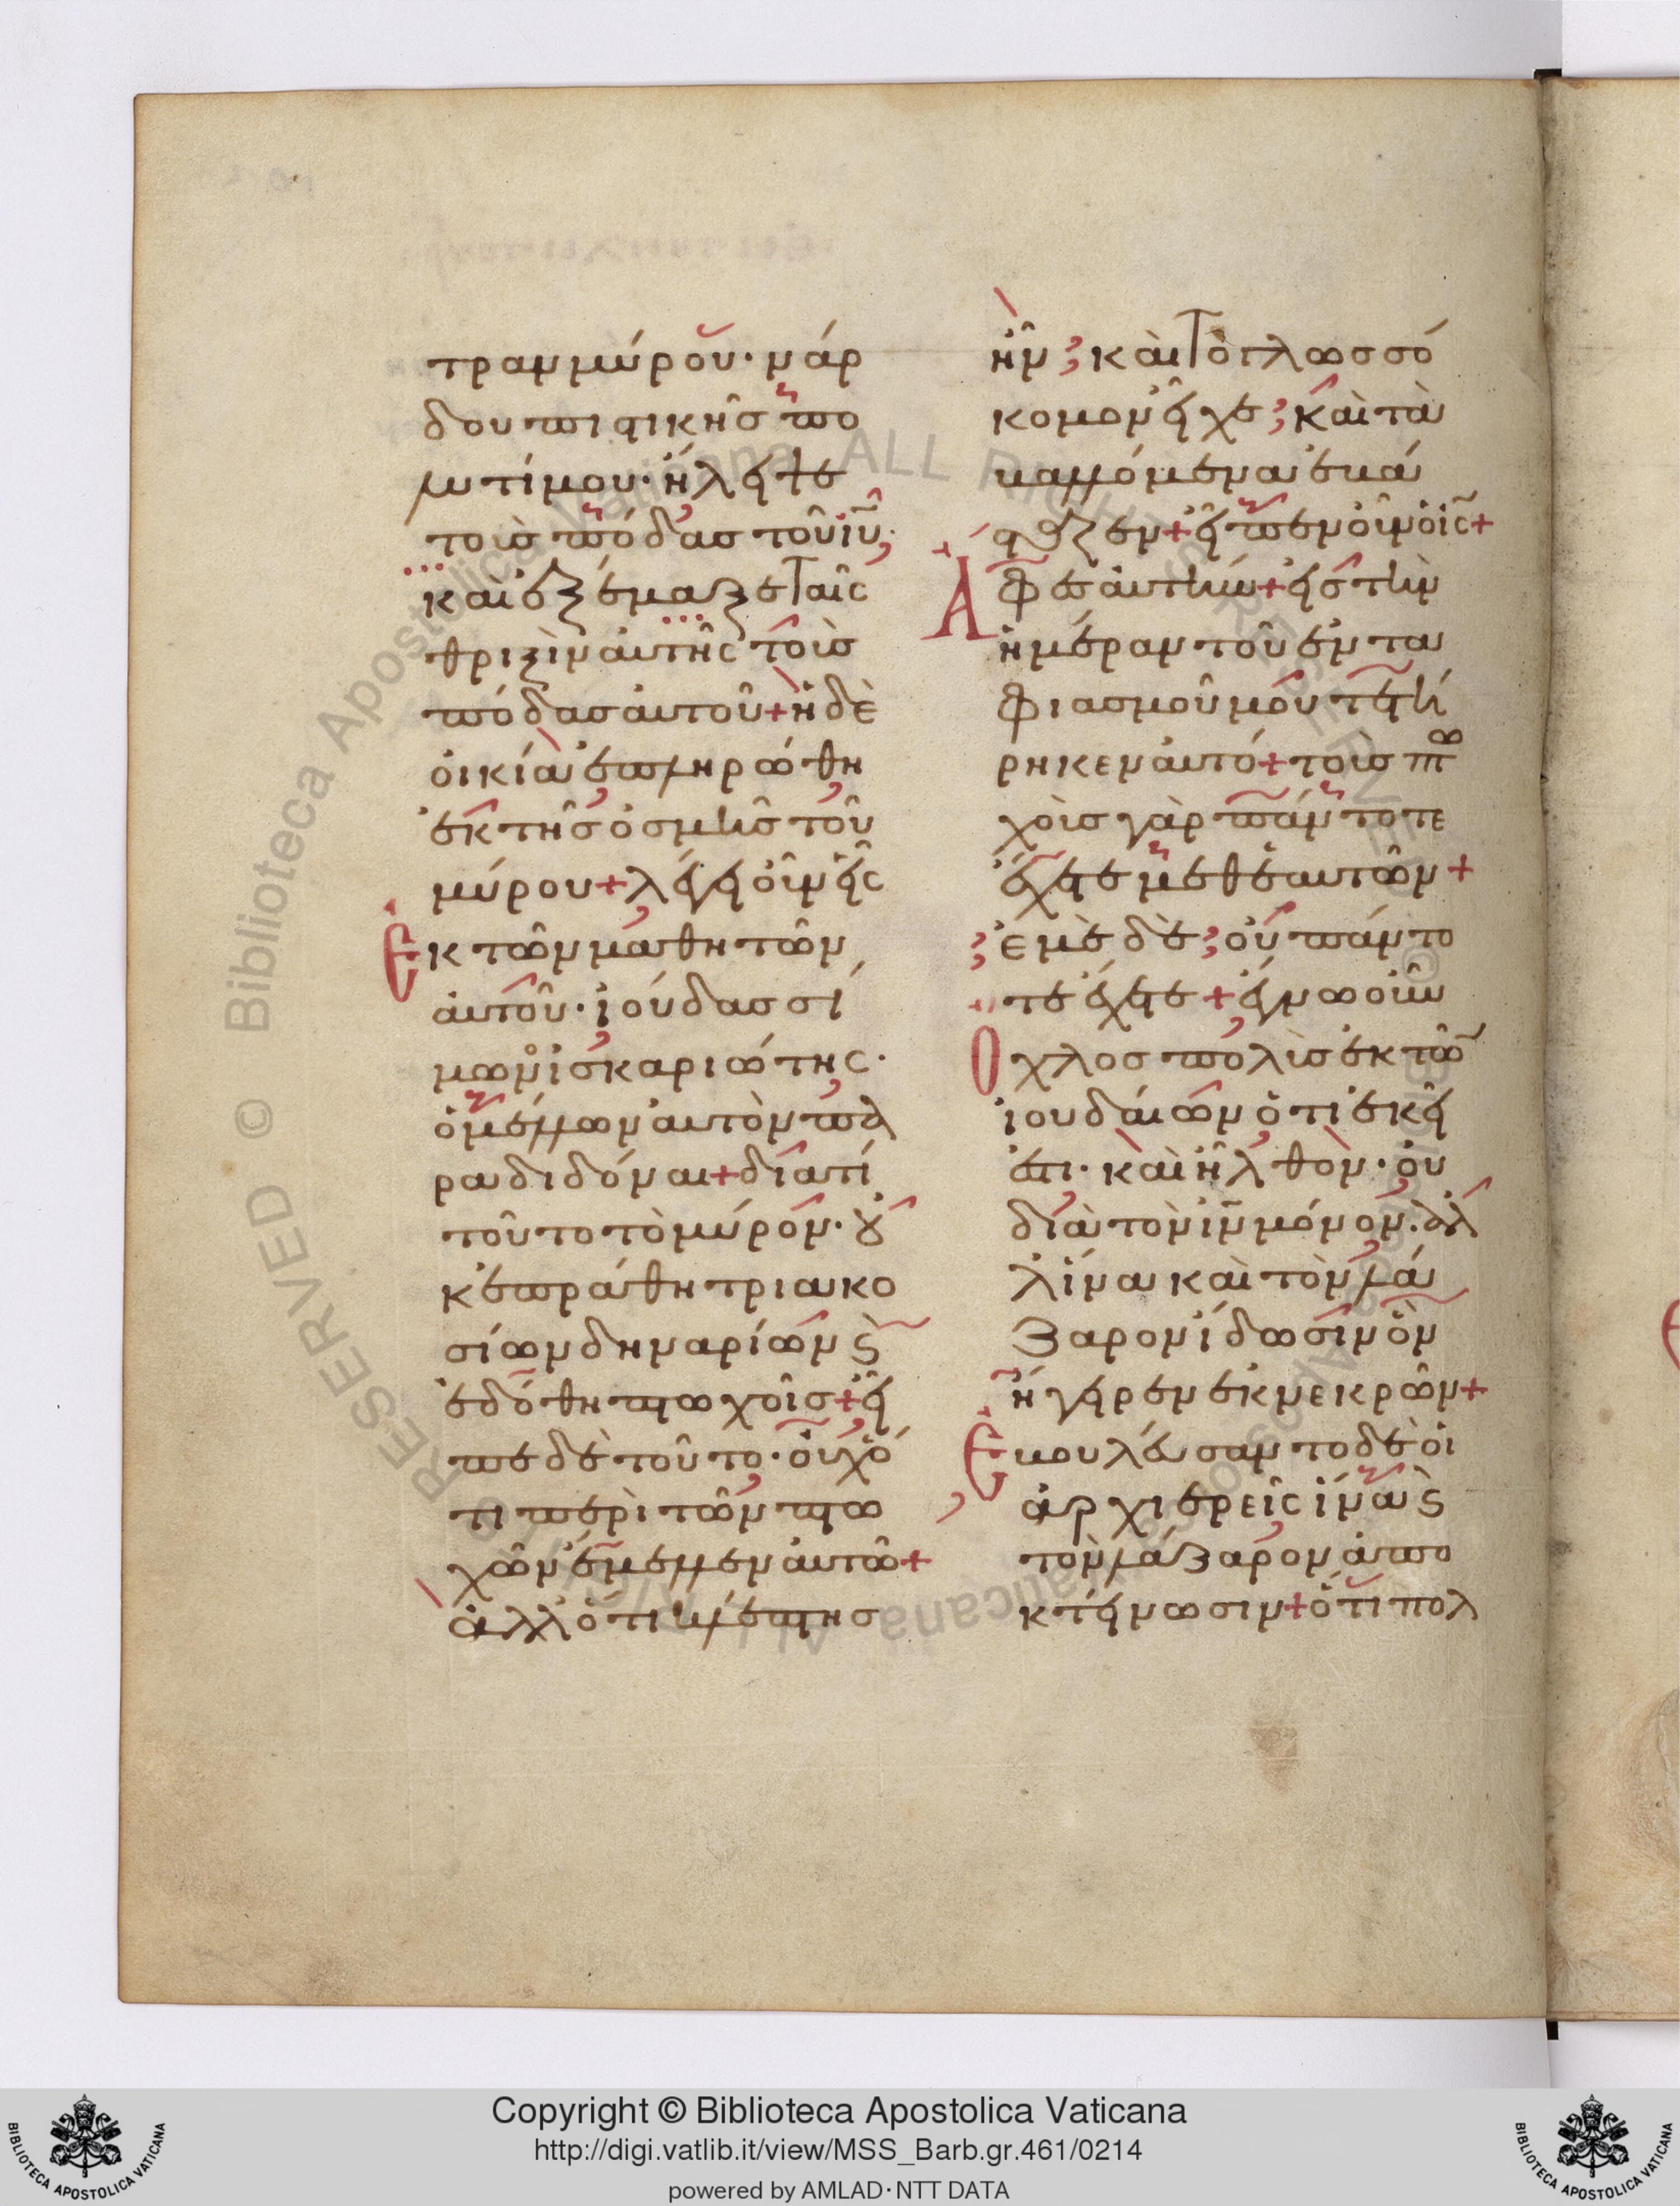 τραν μύρου· νάρ
δου πιστικῆς πο
λυτίμου· ἤλειψε
τοὺς πόδας τοῦ ἰῦ·
καὶ ἐξέμαξε ταῖς
θριξὶν αὐτῆς τοὺς
πόδας αὐτοῦ + ἡ δὲ
οἰκία ἐπληρώθη
ἐκ τῆς ὀσμῆς τοῦ
μύρου + λέγει οὖν εἷς
Ἐκ τῶν μαθητῶν
αὐτοῦ· ἰούδας σί
μωνος ἰσκαριώτης·
ὁ μέλλων αὐτὸν πα
ραδιδόναι + διατί
τοῦτο τὸ μύρον· οὐ
κ ἐπράθη τριακο
σίων δηναρίων ϛ
ἐδόθη πτωχοῖς + εἶ
πε δὲ τοῦτο· οὐχ ὅ
τι περὶ τῶν πτω
χῶν ἔμελλεν αὐτῶ +
ἀλλ ὅτι κλέπτης
ἦν; καὶ τὸ γλωσσό
κομον εἶχε; καὶ τὰ
βαλλόμενα ἐβά
σταζεν + εἶπεν οὖν ὁ ις +
Ἄφες αὐτήν + εἰς τὴν
ἡμέραν τοῦ ἐντα
φιασμοῦ μου τετή
ρηκεν αὐτό + τοὺς πτω
χοὺς γὰρ πάντοτε
ἔχετε μεθ ἑαυτῶν +
ἐμὲ δὲ; οὐ πάντο
τε ἔχετε + ἔγνω οὖν
Ὄχλος πολὺς ἐκ τῶν
ἰουδαίων ὅτι ἐκεῖ
ἐστι· καὶ ἦλθον· οὐ
διὰ τὸν ἰν μόνον· ἀλ
λ ἵνα καὶ τὸν λά
ζαρον ἴδωσιν ὃν
ἤγειρεν ἐκ νεκρῶν +
Ἐβουλεύσαντο δὲ οἱ
ἀρχιερεῖς ἵνα ϛ
τὸν λάζαρον ἀπο
κτείνωσιν + ὅτι πολ
Copyright © Biblioteca Apostolica Vaticana
http://digi.vatlib.it/view/MSS_Barb.gr.461/0214
powered by AMLAD·NTT DATA